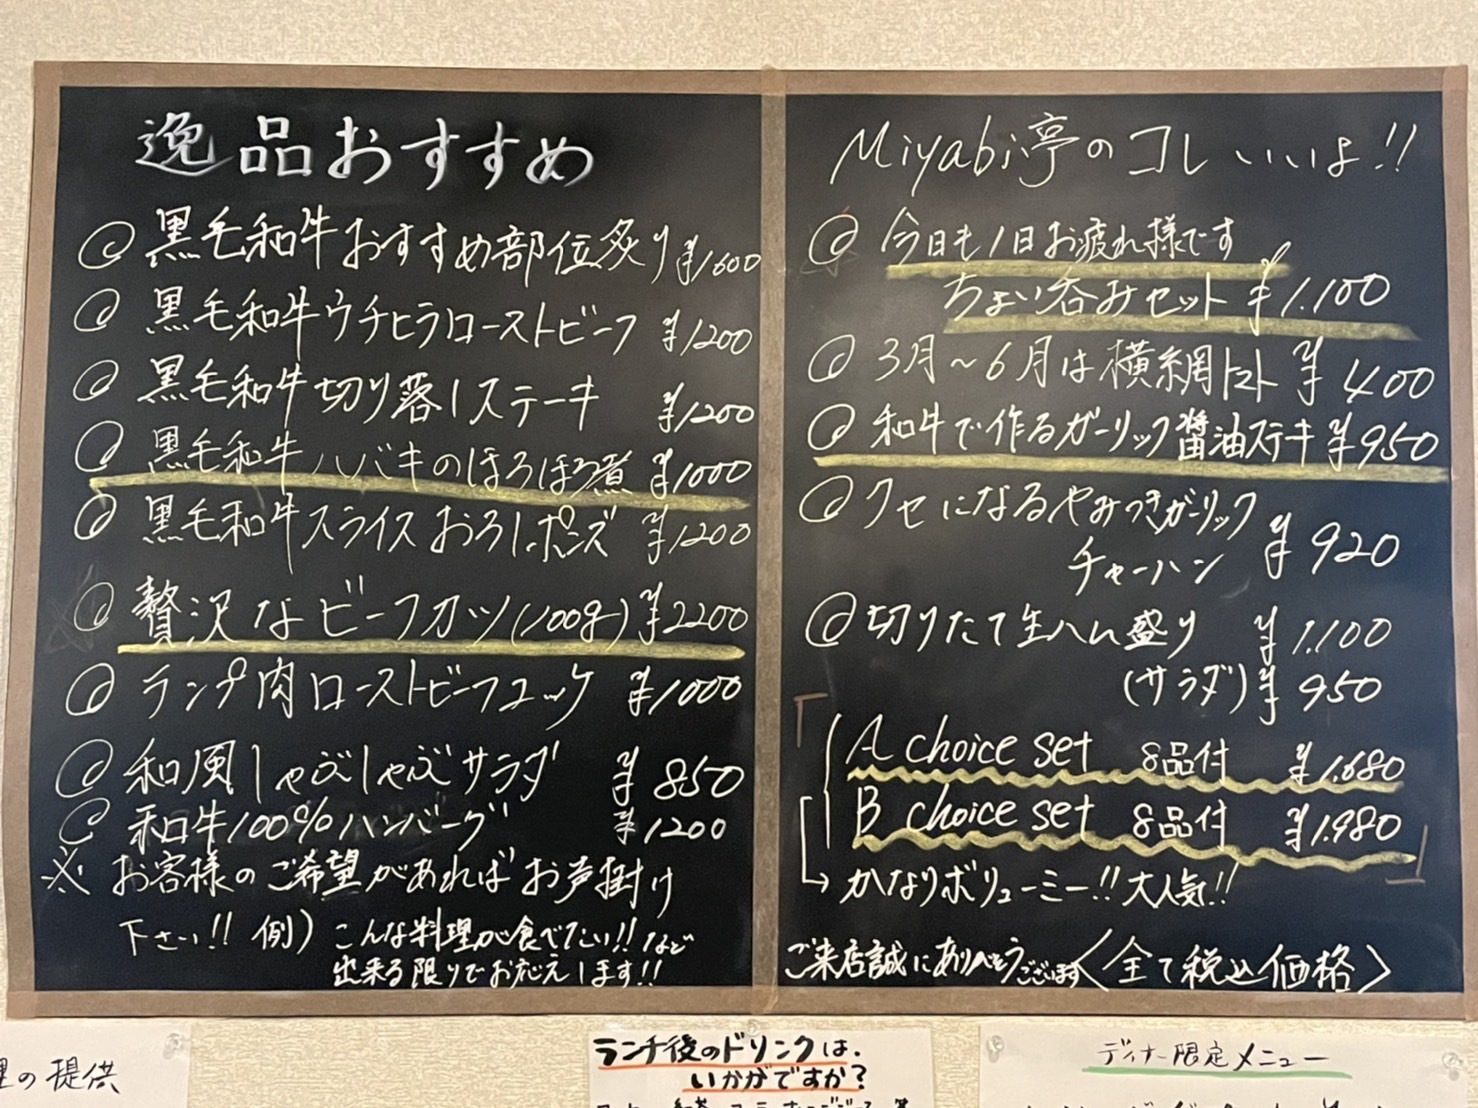 逸品おすすめ
◎ 黒毛和牛おすすめ部位炙り ¥1600
◎ 黒毛和牛ウチヒラローストビーフ ¥1200
◎ 黒毛和牛切り落しステーキ ¥1200
◎ 黒毛和牛ハバキのほろほろ煮 ¥1000
◎ 黒毛和牛スライスおろしポンズ ¥1200
◎ 贅沢なビーフカツ(100g) ¥2200
◎ ランプ肉ローストビーフユッケ ¥1000
◎ 和風しゃぶしゃぶサラダ ¥850
◎ 和牛100%ハンバーグ ¥1200
※ お客様のご希望があればお声掛け
下さい!! 例) こんな料理が食べたい!! など
出来る限りでお応えします!!
Miyabi亭のコレいいよ!!
◎ 今日も1日お疲れ様です
ちょい呑みセット ¥1.100
◎ 3月〜6月は横綱トマト ¥400
◎ 和牛で作るガーリック醤油ステーキ ¥950
◎ クセになるやみつきガーリック
チャーハン ¥920
◎ 切りたて生ハム盛り ¥1.100
(サラダ) ¥950
A choice set 8品付 ¥1.680
B choice set 8品付 ¥1.980
↳ かなりボリューミー!! 大人気!!
ご来店誠にありがとうございます 〈全て税込価格〉
理の提供
ランチ後のドリンクは、
いかがですか？
ディナー限定メニュー